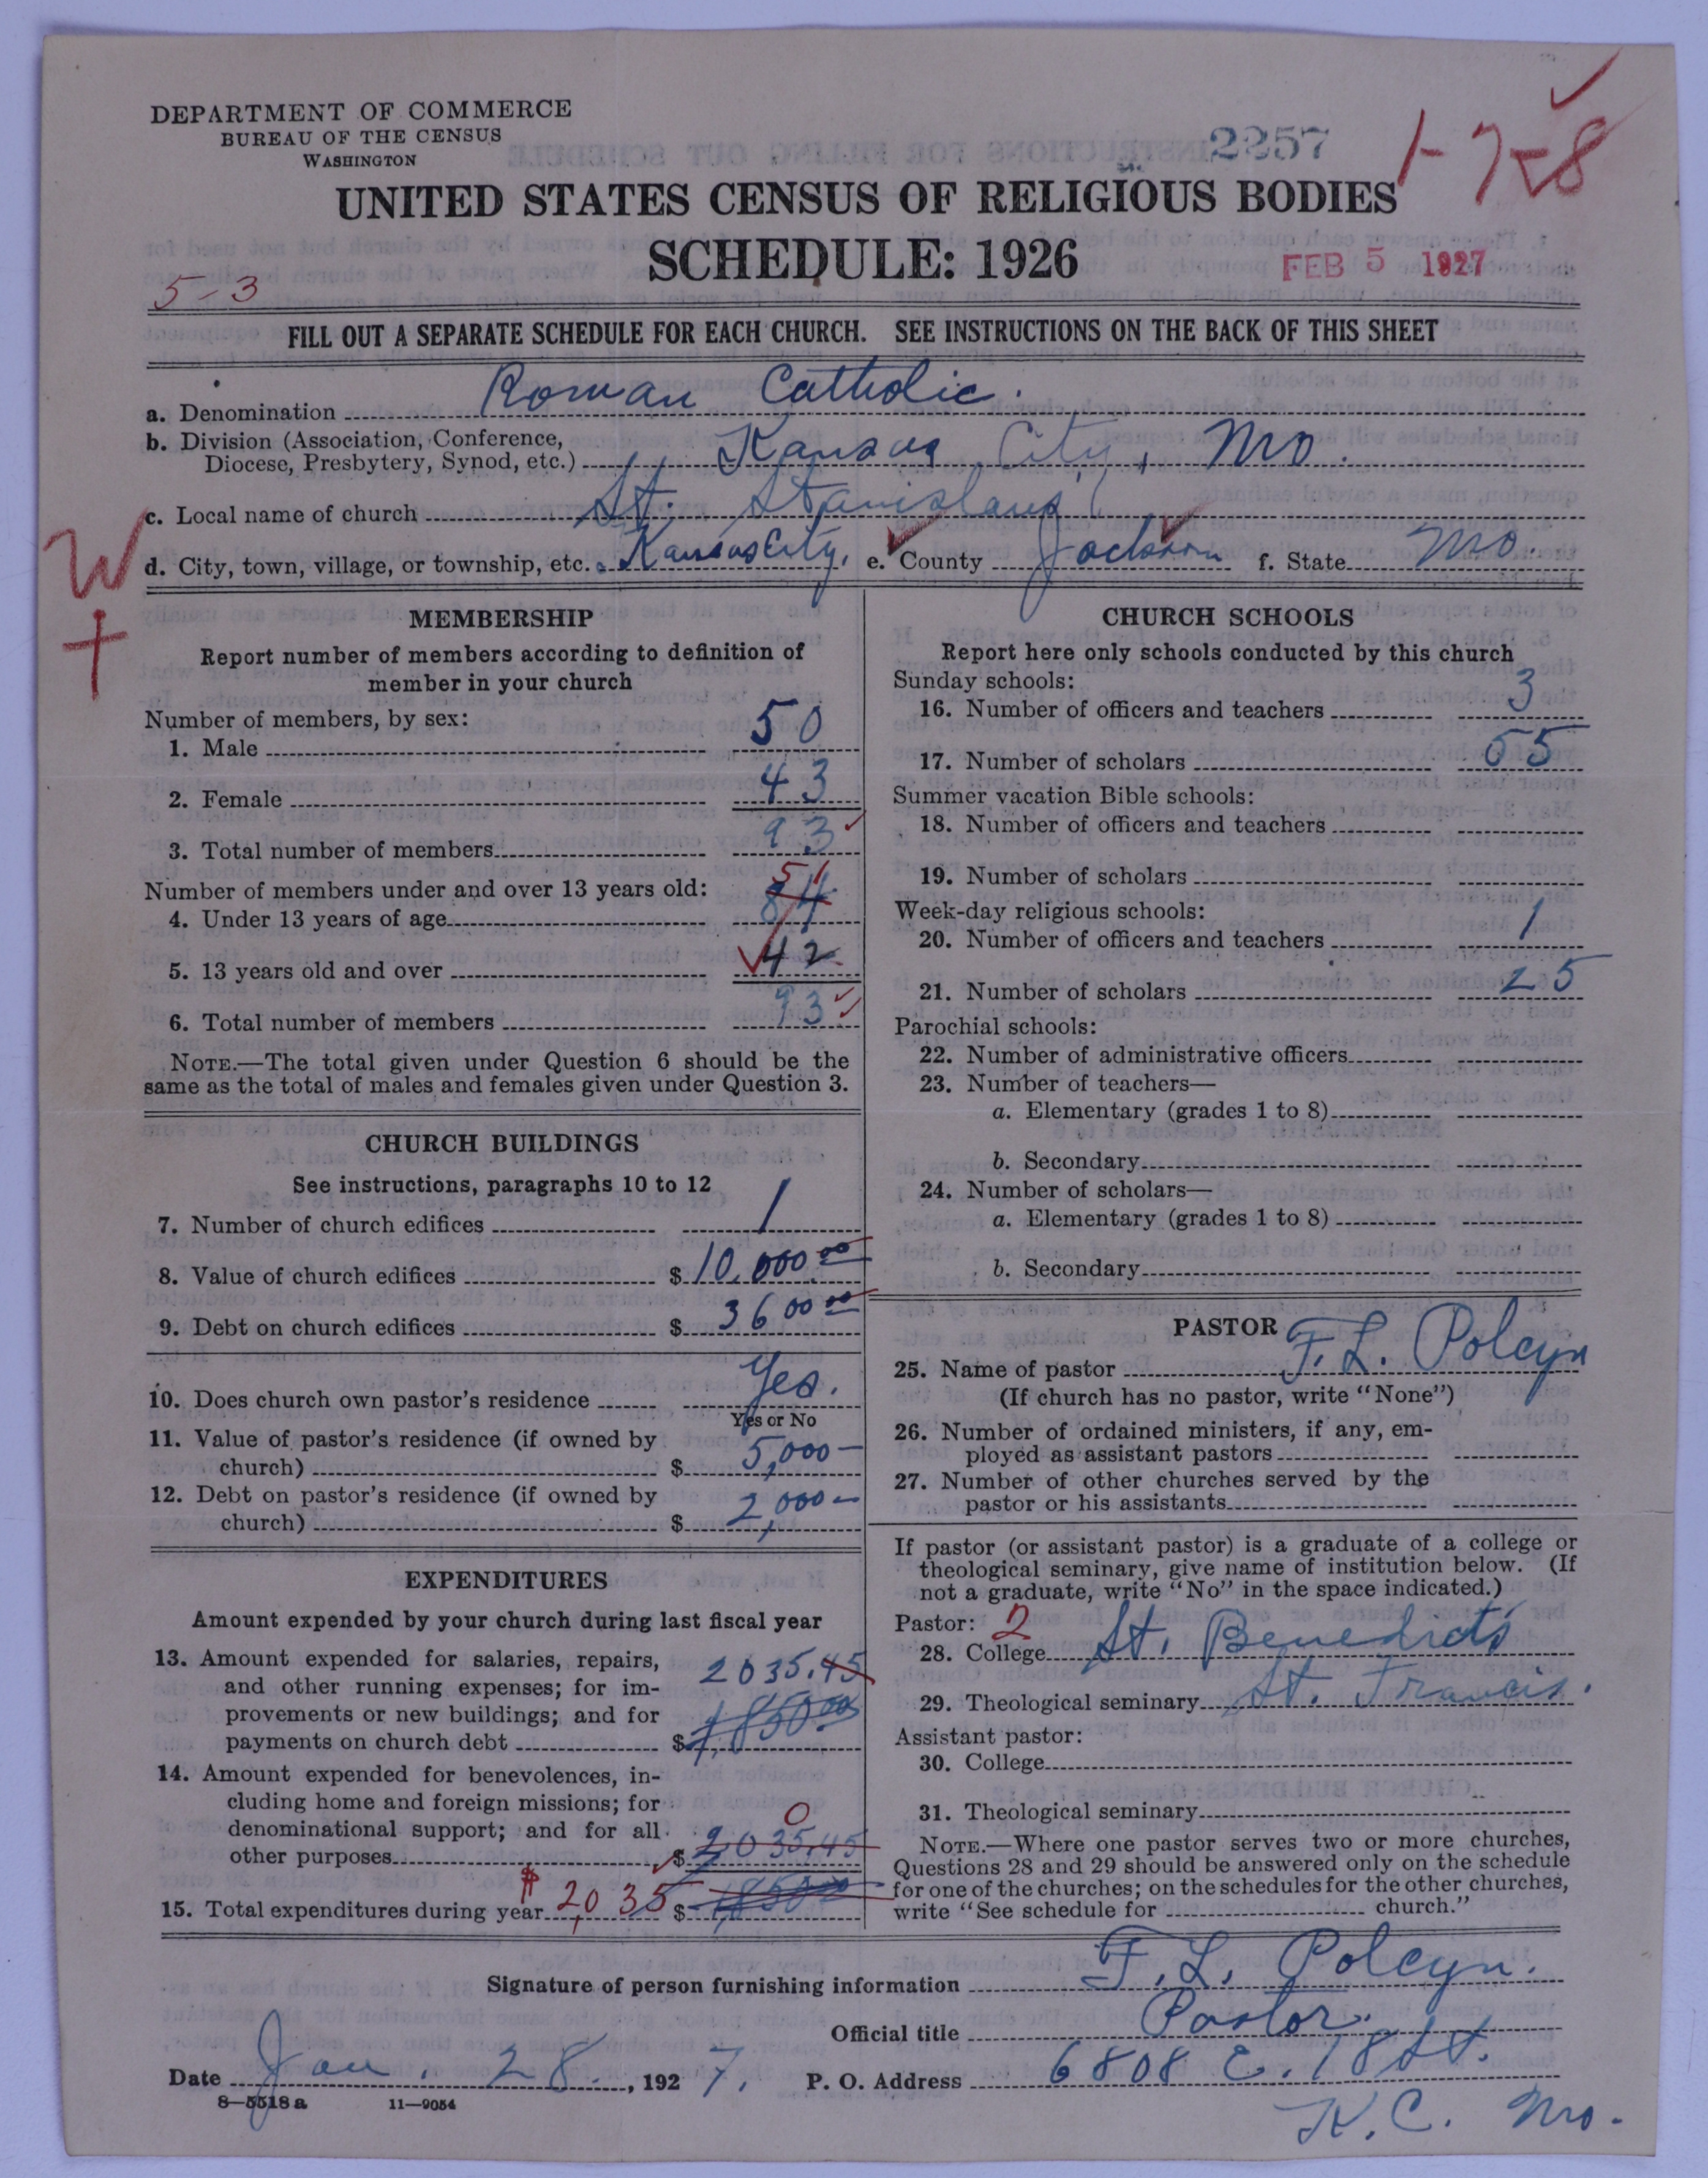 DEPARTMENT OF COMMERCE
BUREAU OF THE CENSUS
WASHINGTON
2257
1-7-8
UNITED STATES CENSUS OF RELIGIOUS BODIES
SCHEDULE: 1926
FEB 5 1927
5-3
FILL OUT A SEPARATE SCHEDULE FOR EACH CHURCH. SEE INSTRUCTIONS ON THE BACK OF THIS SHEET
a. Denomination Roman Catholic.
b. Division (Association, Conference,
Diocese, Presbytery, Synod, etc.) Kansas City, Mo.
c. Local name of church St. Stanislaus
W
d. City, town, village, or township, etc. Kansas City, e. County Jackson f. State Mo.
MEMBERSHIP
Report number of members according to definition of
member in your church
Number of members, by sex:
1. Male 50
2. Female 43
3. Total number of members 93
Number of members under and over 13 years old: 51
4. Under 13 years of age 84
5. 13 years old and over 42
6. Total number of members 93
NOTE.—The total given under Question 6 should be the
same as the total of males and females given under Question 3.
CHURCH BUILDINGS
See instructions, paragraphs 10 to 12
7. Number of church edifices 1
8. Value of church edifices $ 10,000.00
9. Debt on church edifices $ 3600.00
10. Does church own pastor's residence Yes.
Yes or No
11. Value of pastor's residence (if owned by
church) $ 5,000-
12. Debt on pastor's residence (if owned by
church) $ 2,000-
EXPENDITURES
Amount expended by your church during last fiscal year
13. Amount expended for salaries, repairs, 2035.45
and other running expenses; for im-
provements or new buildings; and for
payments on church debt $ 1,850.00
14. Amount expended for benevolences, in-
cluding home and foreign missions; for
denominational support; and for all 0
other purposes $ 2035.45
15. Total expenditures during year $2,035 $ 1,850.00
CHURCH SCHOOLS
Report here only schools conducted by this church
Sunday schools:
16. Number of officers and teachers 3
17. Number of scholars 55
Summer vacation Bible schools:
18. Number of officers and teachers
19. Number of scholars
Week-day religious schools:
20. Number of officers and teachers 1
21. Number of scholars 25
Parochial schools:
22. Number of administrative officers
23. Number of teachers—
a. Elementary (grades 1 to 8)
b. Secondary
24. Number of scholars—
a. Elementary (grades 1 to 8)
b. Secondary
PASTOR
25. Name of pastor F. L. Polcyn
(If church has no pastor, write "None")
26. Number of ordained ministers, if any, em-
ployed as assistant pastors
27. Number of other churches served by the
pastor or his assistants
If pastor (or assistant pastor) is a graduate of a college or
theological seminary, give name of institution below. (If
not a graduate, write "No" in the space indicated.)
Pastor: 2
28. College St. Benedicts
29. Theological seminary St. Francis.
Assistant pastor:
30. College
31. Theological seminary
NOTE.—Where one pastor serves two or more churches,
Questions 28 and 29 should be answered only on the schedule
for one of the churches; on the schedules for the other churches,
write "See schedule for church."
Signature of person furnishing information F. L. Polcyn.
Official title Pastor.
Date Jan. 28, 1927. P. O. Address 6808 E. 18 St.
8—5518 a 11—9054
K. C. Mo.